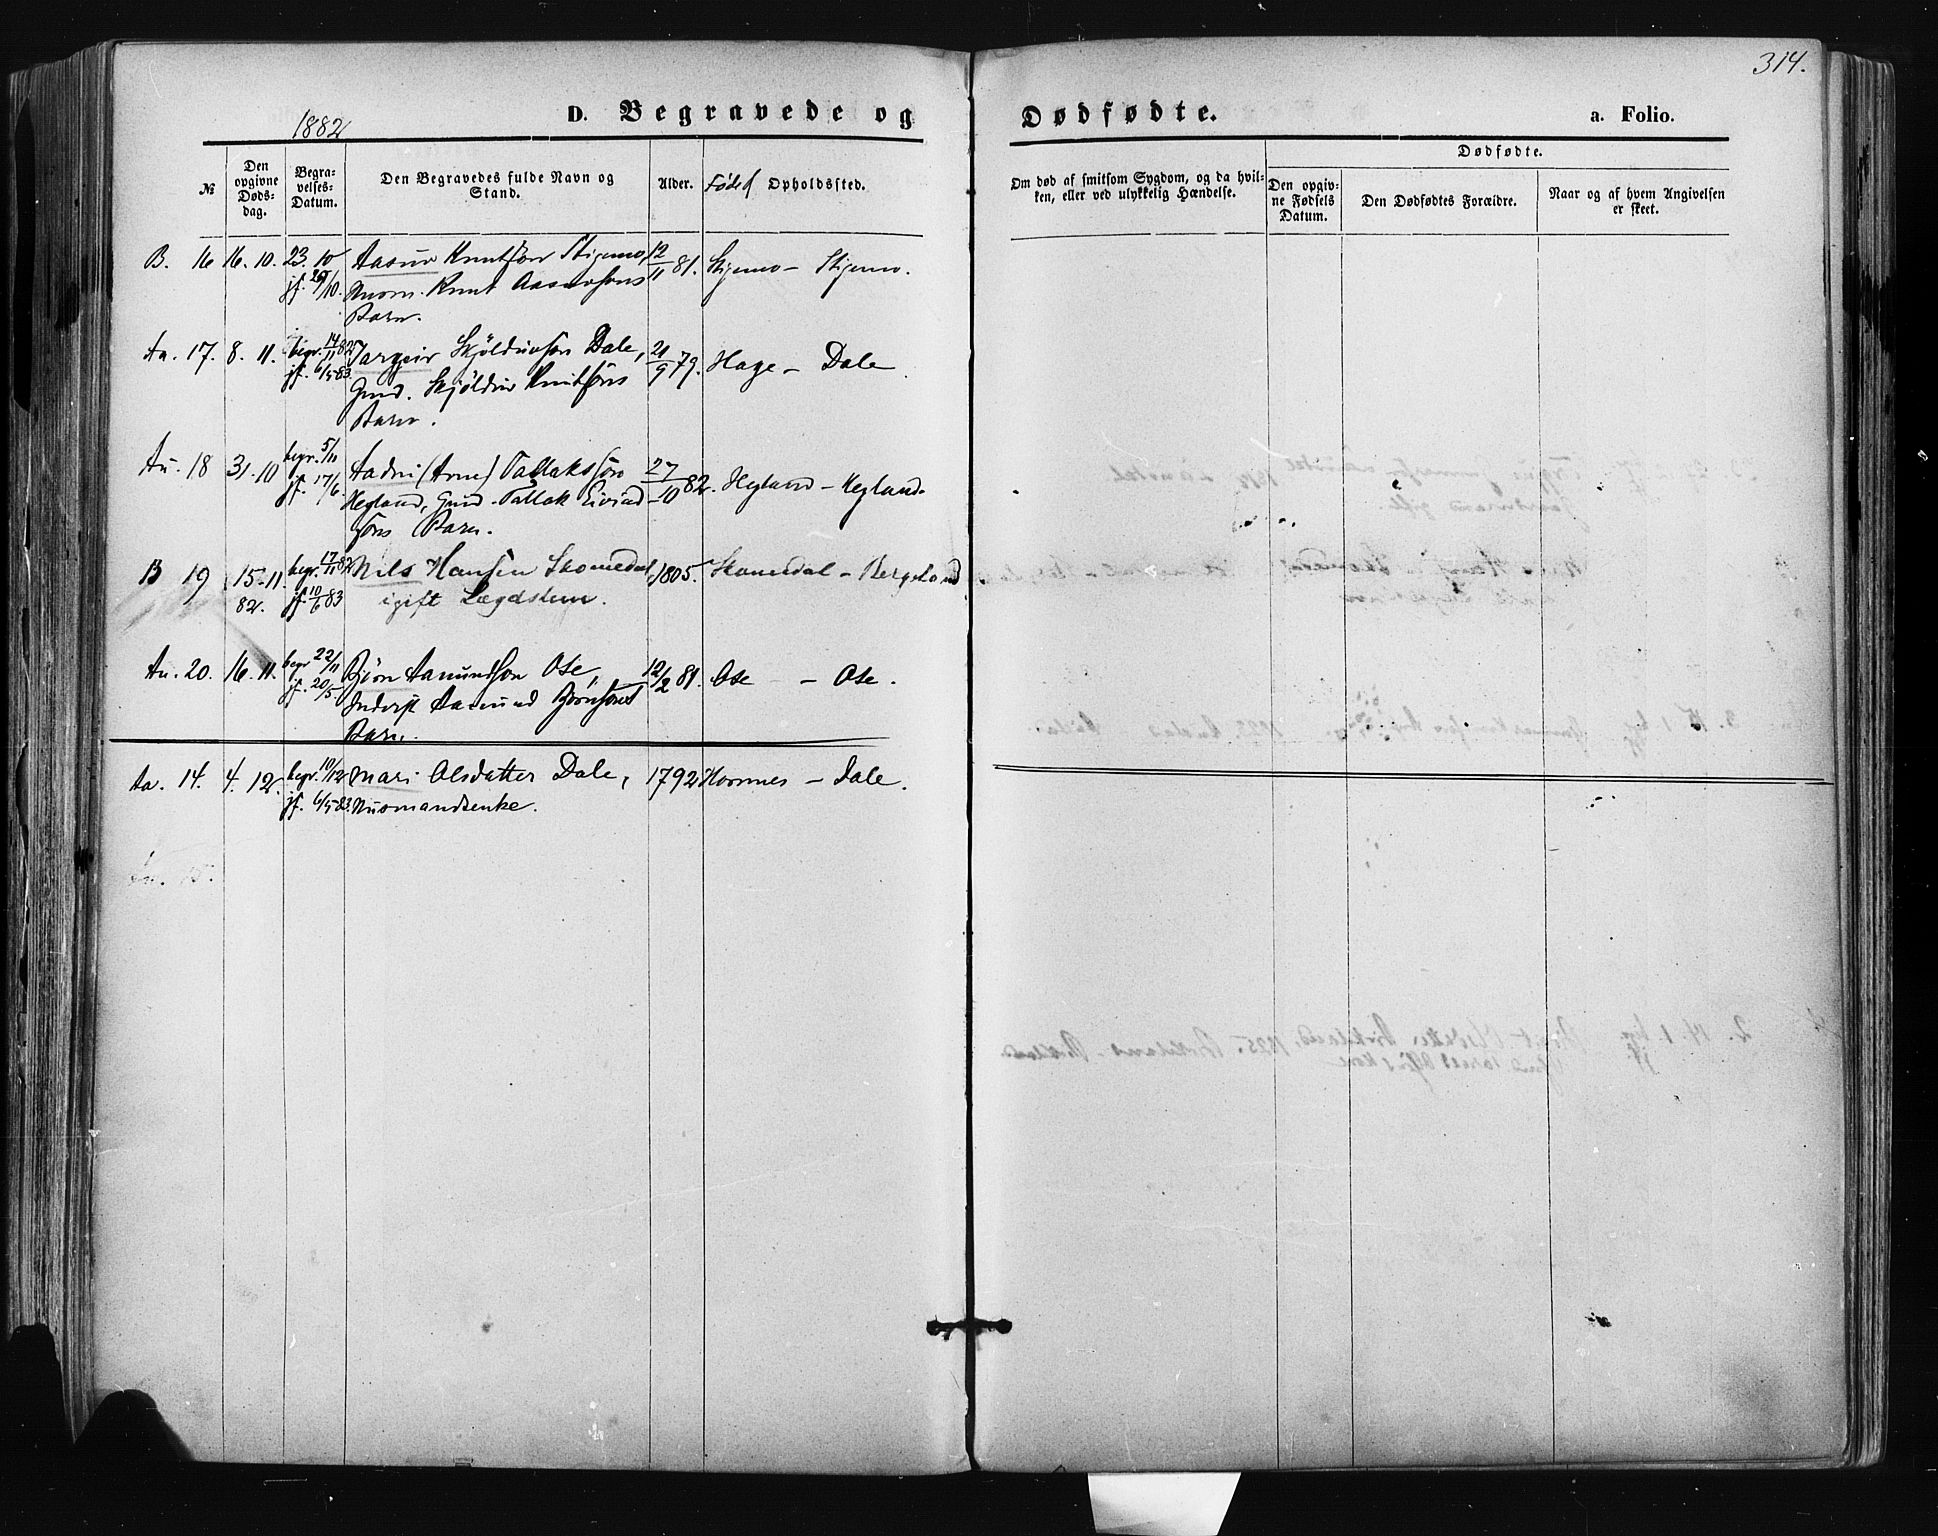 314.
1882
D. Begravede og Dødfødte.
a. Folio.
№
Den opgivne Dødsdag.
Begravelses-Datum.
Den Begravedes fulde Navn og Stand.
Alder.
Født Opholdssted.
Om død af smitsom Sygdom, og da hvilken, eller ved ulykkelig Hændelse.
Dødfødte.
Den opgivne Fødsels Datum.
Den Dødfødtes Forældre.
Naar og af hvem Angivelsen er skeet.
B. 16 16. 10. 23. 10 Aasuv Knutsøn Stigemo, 12/11 81. Stigemo – Stigemo.
jf. /10. Knut
Barn.
Aa. 17. 8. 11. begr. 14/11 82 Targeir Skjöldulvsøn Dale, 21/9 79. Hage – Dale
jf. 6/5 83 Gmd. Skjöldulv Knutsøns
Barn.
Au. 18 31. 10 begr. 5/11 Aadni (Arne) Tallakssøn 27/10 82. Hegland – Hegland.
jf. 17/6. Hegland, Gmd. Tallak Eivind-
søns Barn.
B 19 15–11 82. begr. 17/11 82 Nils Hansen Skomedal, 1805. Skomedal – Bergeland
jf. 10/6 83 igift Lægdslem.
Au. 20. 16. 11. begr 22/11 Bjørn Aamundsøn Ose, 12/2 81. Ose – Ose.
jf. 20/5. Inderst Aamund Bjørnsøns
Barn.
Aa. 14. 4. 12. begr. 10/12 Mari Olsdatter Dale, 1792 Hornnes – Dale.
jf. 6/5 83. Husmandsenke.